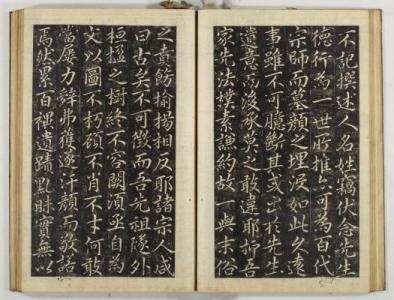 不記撰述人名姓竊伏念先生
德行為一世所推可為百代
宗師而墓顏之埋沒如此久遠
事雖不可臆斷其或出於先生
遺意後承莫之敢違耶抑吾
家先法樸素謙約故一與末俗
之賁飾揄揚相反耶諸宗人咸
曰古矣不可徵而吾先祖隧外
桓楹之樹終不容闕須亟自為
文以圖不朽碩不肖不才何敢
當屢力辭弗獲遂汗顏而敬諾
焉然累百禩遺蹟昧實無以